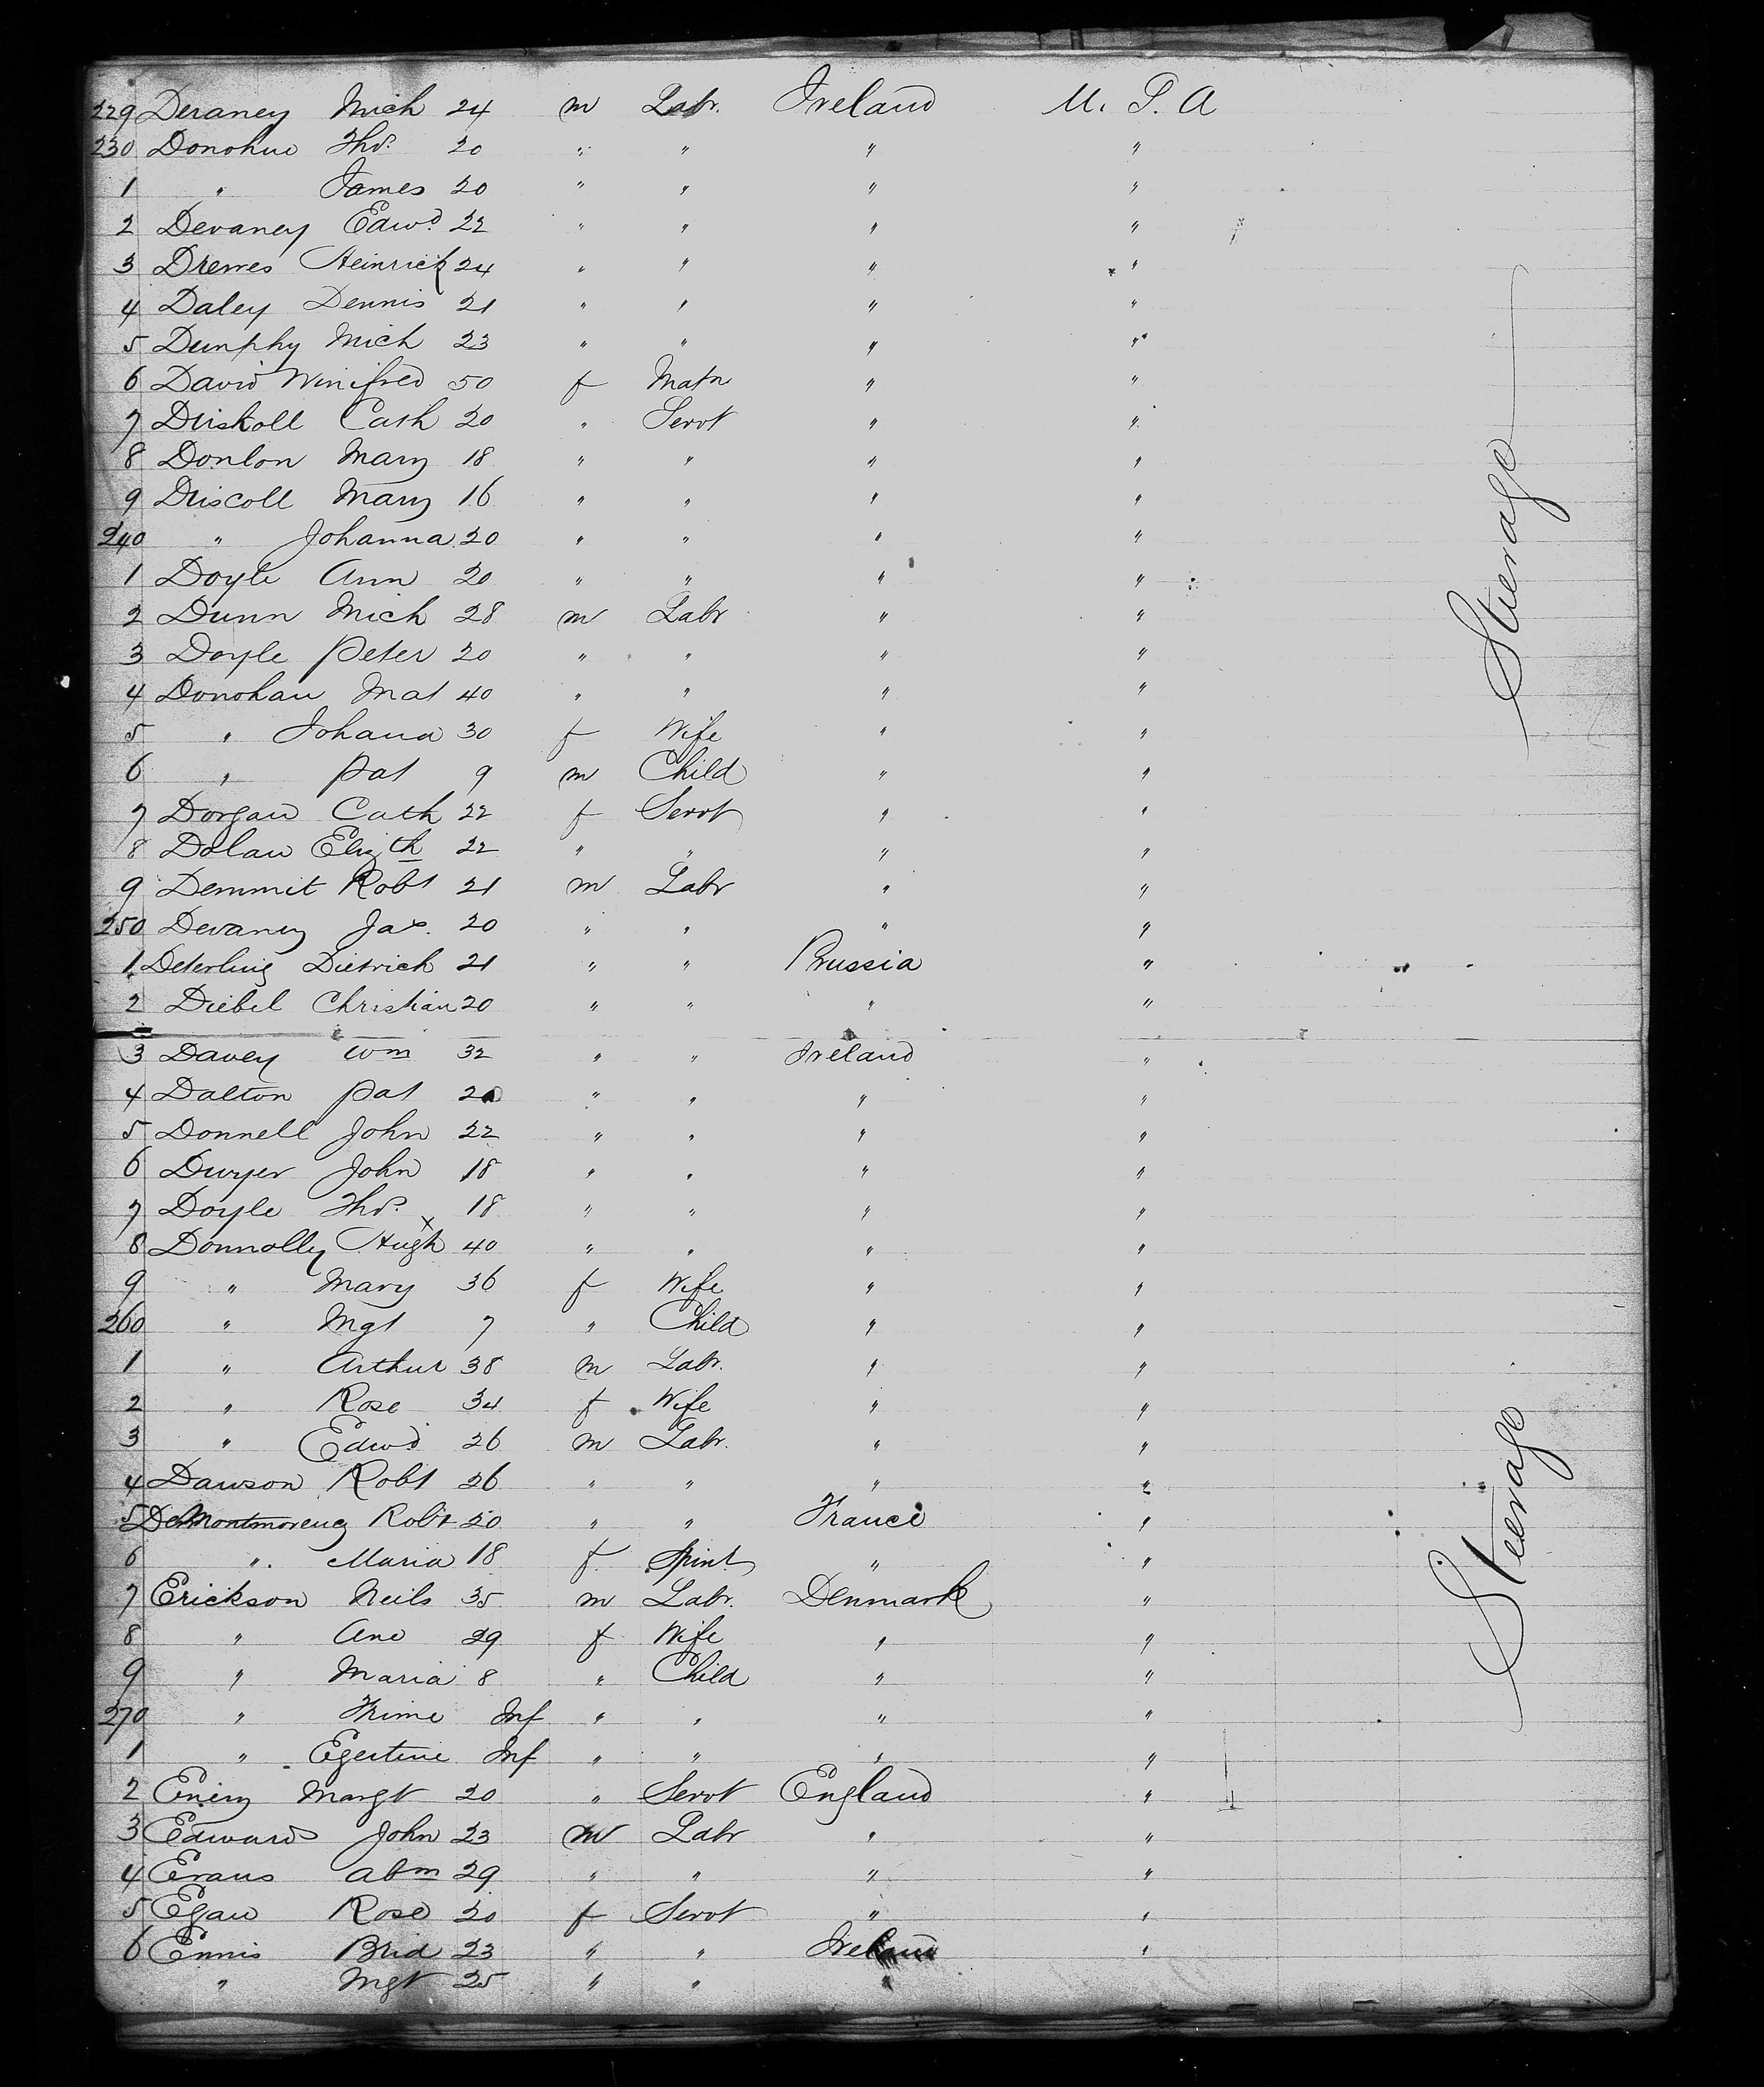 229 Deraney Mich 24 m Labr. Ireland U. S. A
230 Donohue Thos. 20 " " " "
1 " James 20 " " " "
2 Devaney Edwd 22 " " " "
3 Drewes Heinrich 24 " " " "
4 Daley Dennis 21 " " " "
5 Dunphy Mich 23 " " " "
6 David Winifred 50 f Matn " "
7 Driskoll Cath 20 " Servt " "
8 Donlon Mary 18 " " " "
9 Driscoll Mary 16 " " " "
240 " Johanna 20 " " " "
1 Doyle Ann 20 " " " "
2 Dunn Mich 28 m Labr " "
3 Doyle Peter 20 " " " "
4 Donohan Mat 40 " " " "
5 " Johana 30 f Wife " "
6 " Pat 9 m Child " "
7 Dorgan Cath 22 f Servt " "
8 Dolan Elizth 22 " " " "
9 Demmit Robt 21 m Labr " "
250 Devaney Jas. 20 " " " "
1 Deterling Dietrich 21 " " Prussia "
2 Diebel Christian 20 " " " "
3 Davey Wm 32 " " Ireland "
4 Dalton Pat 20 " " " "
5 Donnell John 22 " " " "
6 Dwyer John 18 " " " "
7 Doyle Thos. 18 " " " "
8 Donnolly Hugh x 40 " " " "
9 " Mary 36 f Wife " "
260 " Mgt 7 " Child " "
1 " Arthur 38 m Labr. " "
2 " Rose 34 f Wife " "
3 " Edwd 26 m Labr. " "
4 Dawson Robt 26 " " " "
5 DeMontmorency Robt 20 " " France "
6 " Maria 18 f Spinst " "
7 Erickson Neils 35 m Labr. Denmark "
8 " Ane 29 f Wife " "
9 " Maria 8 " Child " "
270 " Trime Inf " " " "
1 " Egertine Inf " " " "
2 Eniry Margt 20 " Servt England "
3 Edwards John 23 m Labr " "
4 Evans Abm 29 " " " "
5 Egan Rose 20 f Servt " "
6 Ennis Brid 23 " " Ireland "
" Mgt 25 " " "
Steerage
Steerage